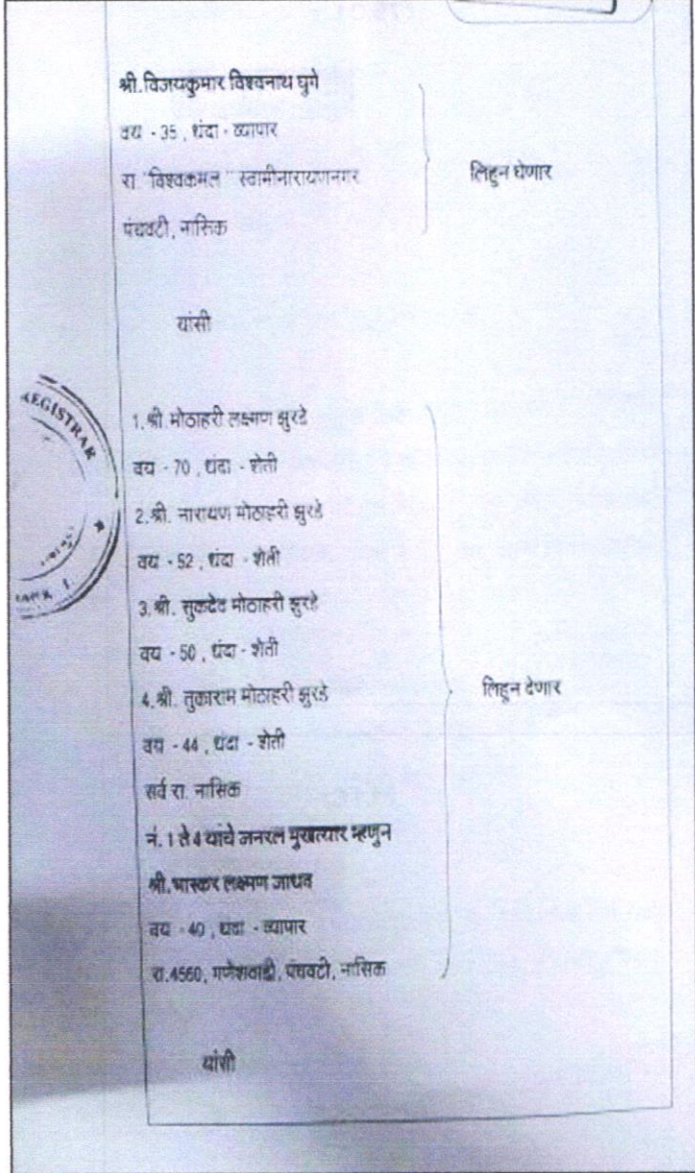 श्री.विजयकुमार विश्वनाथ घुगे
वय - 35 , धंदा - व्यापार
रा. "विश्वकमल" स्वामीनारायणनगर
लिहुन घेणार
पंचवटी, नासिक
यांसी
REGISTRAR
1.श्री. मोठाहरी लक्ष्मण झुरडे
वय - 70 , धंदा - शेती
2.श्री. नारायण मोठाहरी झुरडे
वय - 52 , धंदा - शेती
3.श्री. सुकदेव मोठाहरी झुरडे
वय - 50 , धंदा - शेती
4.श्री. तुकाराम मोठाहरी झुरडे
लिहुन देणार
वय - 44 , धंदा - शेती
सर्व रा. नासिक
नं. 1 ते 4 यांचे जनरल मुखत्यार म्हणुन
श्री.भास्कर लक्ष्मण जाधव
वय - 40 , धंदा - व्यापार
रा.4560, गणेशवाडी, पंचवटी, नासिक
यांसी